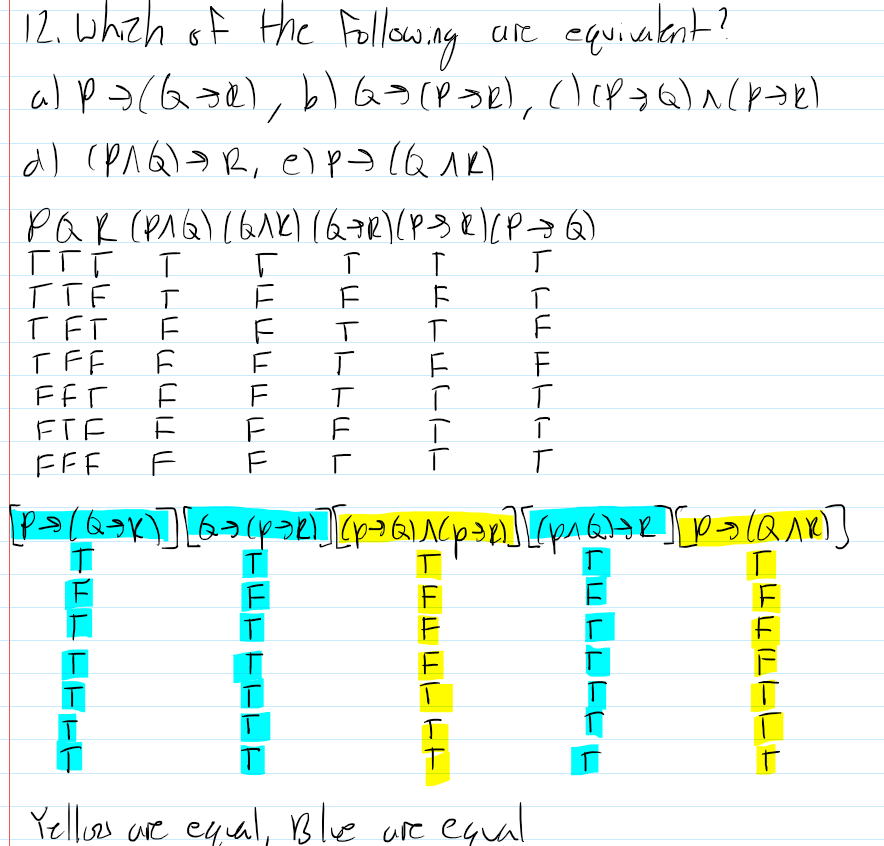 12. Which of the following are equivalent?
a) P → (Q → R), b) Q → (P → R), c) (P → Q) ∧ (P → R)
d) (P ∧ Q) → R, e) P → (Q ∧ R)
P Q R (P ∧ Q) (Q ∧ R) (Q → R) (P → R) (P → Q)
T T T T T T T T
T T F T F F F T
T F T F F T T F
T F F F F T F F
F F T F F T T T
F T F F F F T T
F F F F F T T T
[P → (Q → R)] [Q → (P → R)] [(P → Q) ∧ (P → R)] [(P ∧ Q) → R] [P → (Q ∧ R)]
T T T T T
F F F F F
T T F T F
T T F T F
T T T T T
T T T T T
T T T T T
Yellow are equal, Blue are equal